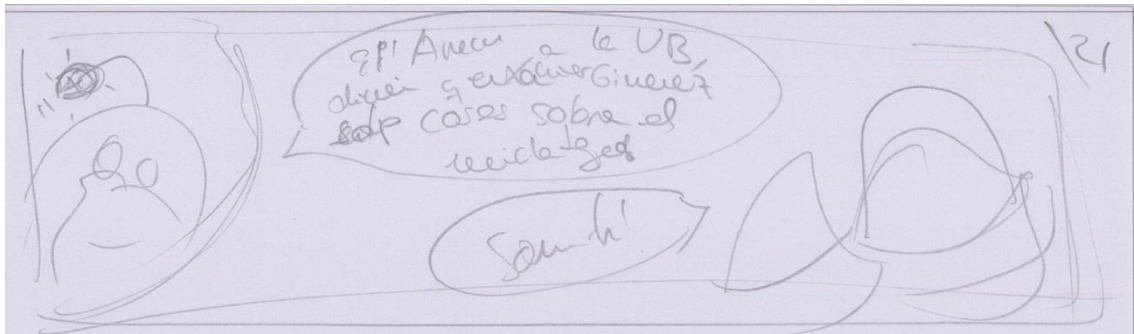 ep! Anem a la UB,
diuen q en Xavier Gimenez
sap coses sobre el
reciclatge
Som-hi!